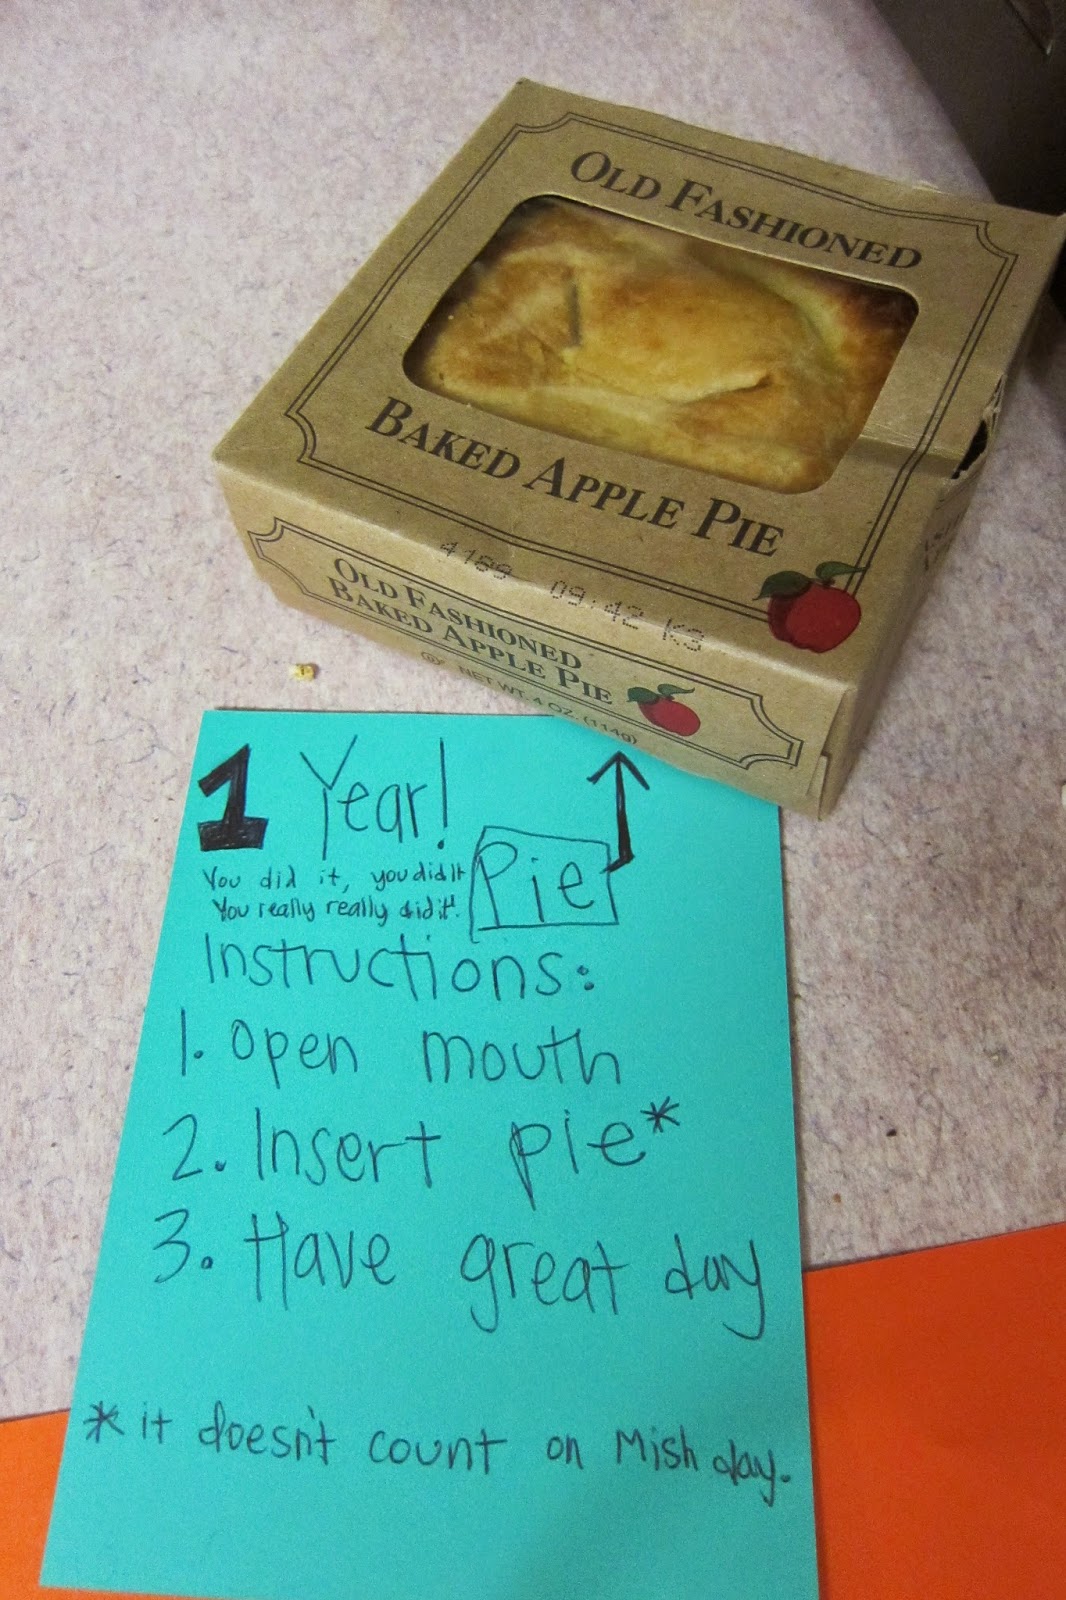 OLD FASHIONED
BAKED APPLE PIE
4189 09:42 K3
OLD FASHIONED
BAKED APPLE PIE
NET WT. 4 OZ. (114g)
1 Year!
Pie
You did it, you did it
You really really did it!
Instructions:
1. open mouth
2. Insert pie*
3. Have great day
* it doesn't count on Mish day.